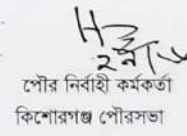 পৌর নির্বাহী কর্মকর্তা
কিশোরগঞ্জ পৌরসভা